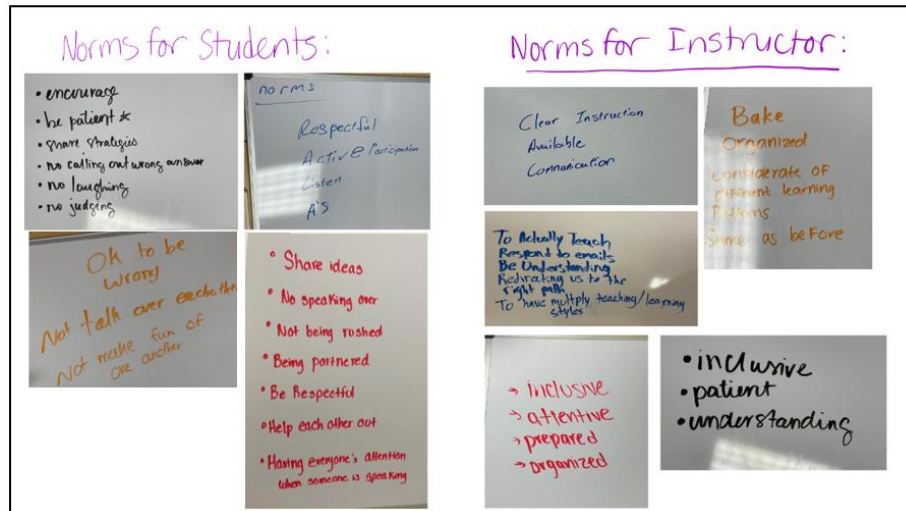 Norms for Students:
• encourage
• be patient *
• share strategies
• no calling out wrong answer
• no laughing
• no judging
norms
Respectful
Active Participation
Listen
A's
Ok to be
wrong
Not talk over eachother
Not make fun of
one another
• Share ideas
• No speaking over
• Not being rushed
• Being partnered
• Be Respectful
• Help each other out
• Having everyone's attention
when someone is speaking
Norms for Instructor:
Clear Instruction
Available
Communication
Bake
Organized
Considerate of
different learning
Patterns
Same as before
To Actually Teach
Respond to emails
Be Understanding
Redirecting us to the
right path
To have multply teaching/learning
styles
→ inclusive
→ attentive
→ prepared
→ organized
• inclusive
• patient
• understanding